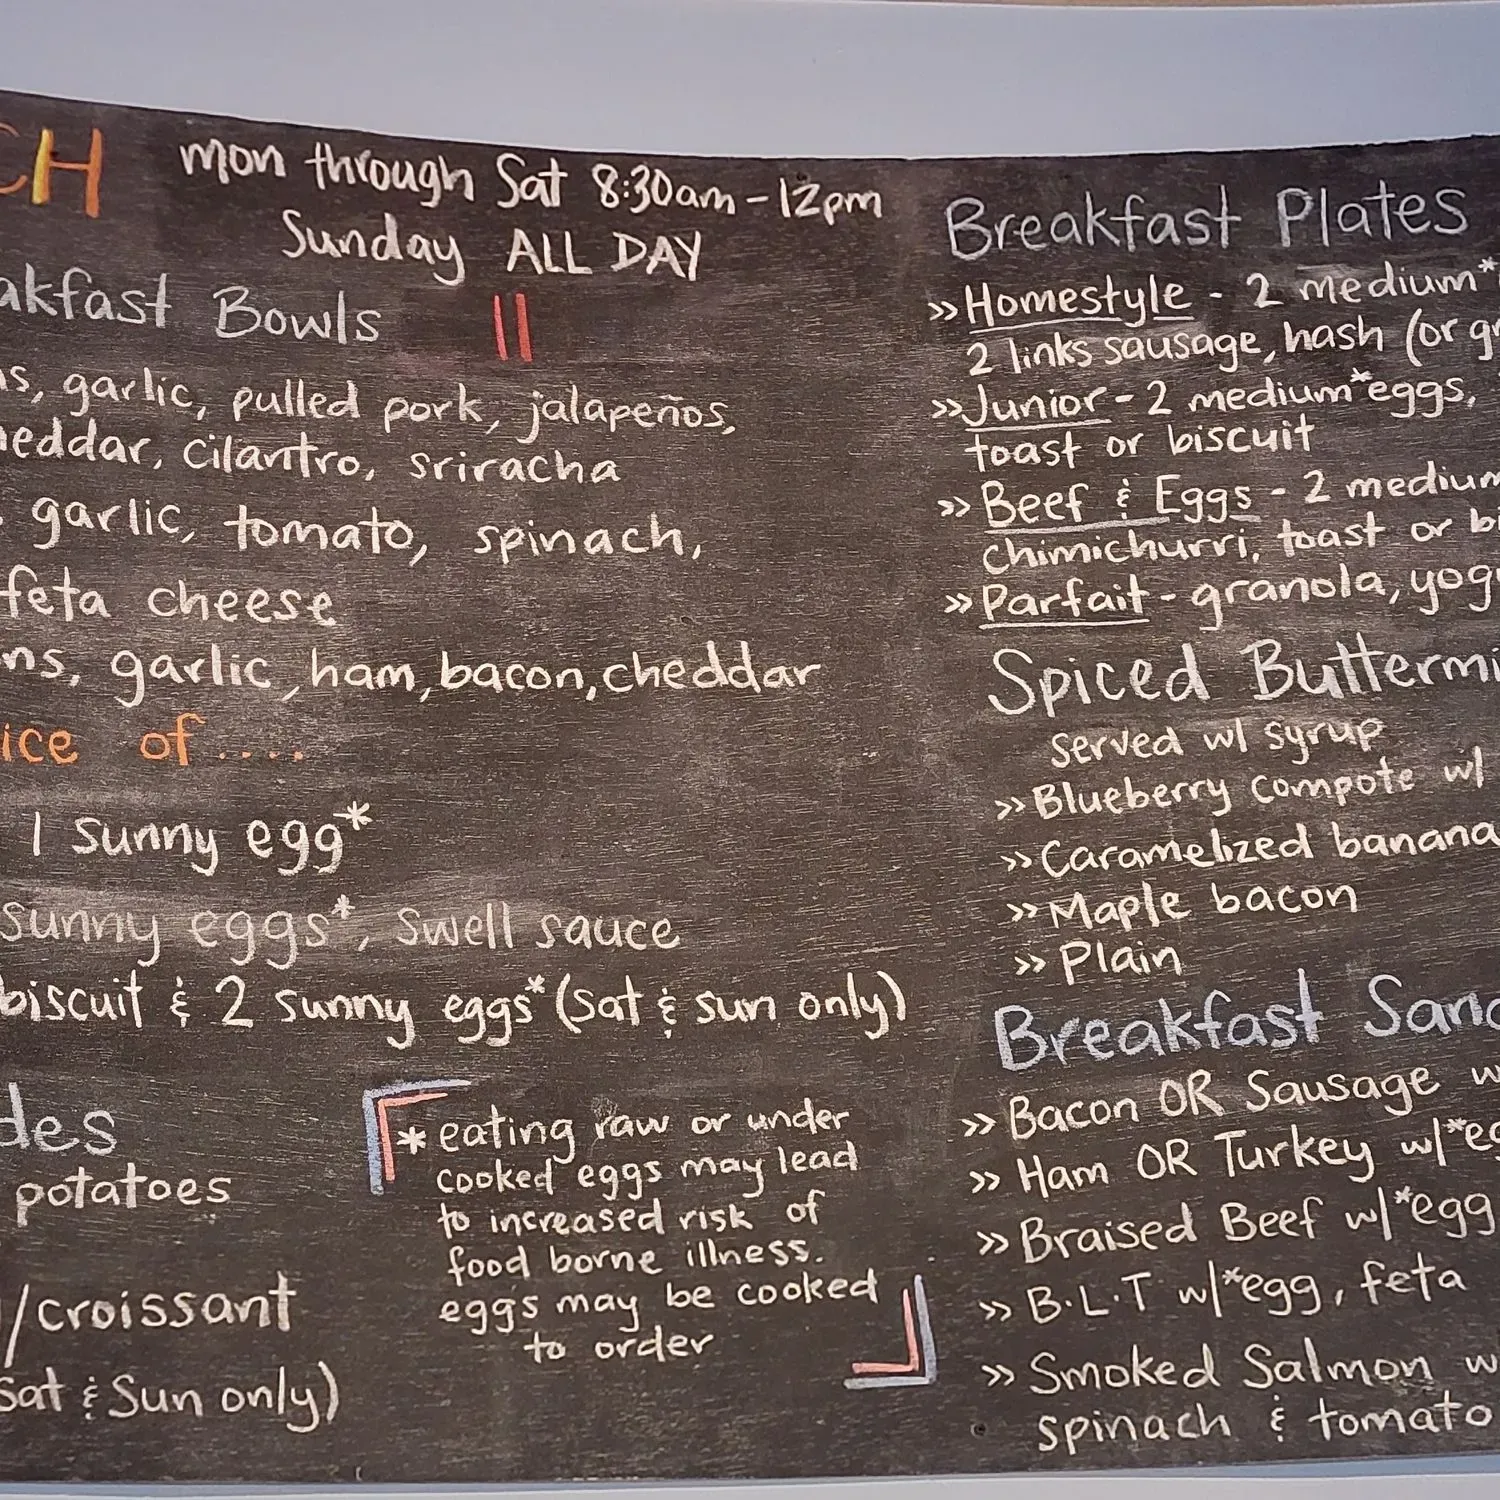 CH
mon through Sat 8:30am-12pm
Sunday ALL DAY
akfast Bowls
ns, garlic, pulled pork, jalapeños,
heddar, cilantro, sriracha
garlic, tomato, spinach,
feta cheese
ns, garlic, ham, bacon, cheddar
ice of....
1 sunny egg*
sunny eggs*, swell sauce
biscuit & 2 sunny eggs* (sat & sun only)
des
potatoes
/croissant
Sat & Sun only)
* eating raw or under
cooked eggs may lead
to increased risk of
food borne illness.
eggs may be cooked
to order
Breakfast Plates
» Homestyle - 2 medium*
2 links sausage, hash (or gr
» Junior - 2 medium*eggs,
toast or biscuit
» Beef & Eggs - 2 medium
chimichurri, toast or bi
» Parfait - granola, yog
Spiced Buttermi
served w/ syrup
» Blueberry compote w/
» Caramelized banana
» Maple bacon
» Plain
Breakfast Sand
» Bacon OR Sausage w
» Ham OR Turkey w/*eg
» Braised Beef w/*egg
» B.L.T w/*egg, feta
» Smoked Salmon w
spinach & tomato